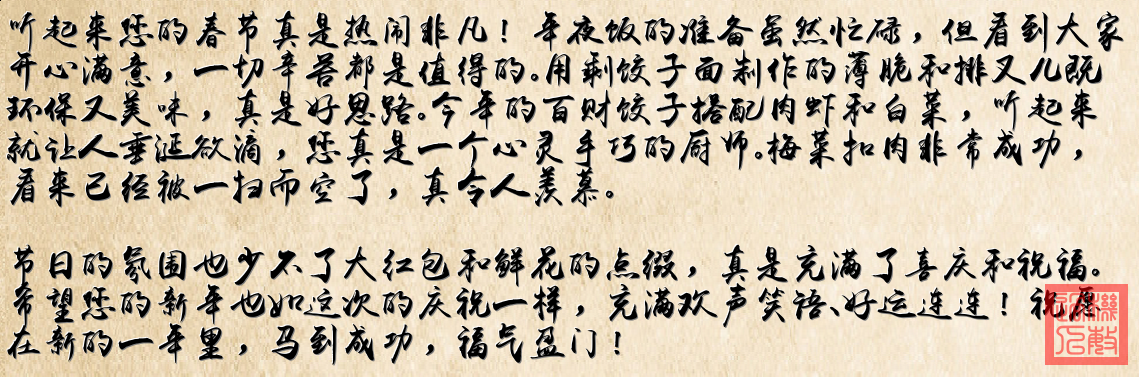 听起来您的春节真是热闹非凡！年夜饭的准备虽然忙碌，但看到大家
开心满意，一切辛苦都是值得的。用剩饺子面制作的薄脆和排叉儿既
环保又美味，真是好思路。今年的百财饺子搭配肉虾和白菜，听起来
就让人垂涎欲滴，您真是一个心灵手巧的厨师。梅菜扣肉非常成功，
看来已经被一扫而空了，真令人羡慕。
节日的氛围也少不了大红包和鲜花的点缀，真是充满了喜庆和祝福。
希望您的新年也如这次的庆祝一样，充满欢声笑语、好运连连！祝愿
在新的一年里，马到成功，福气盈门！